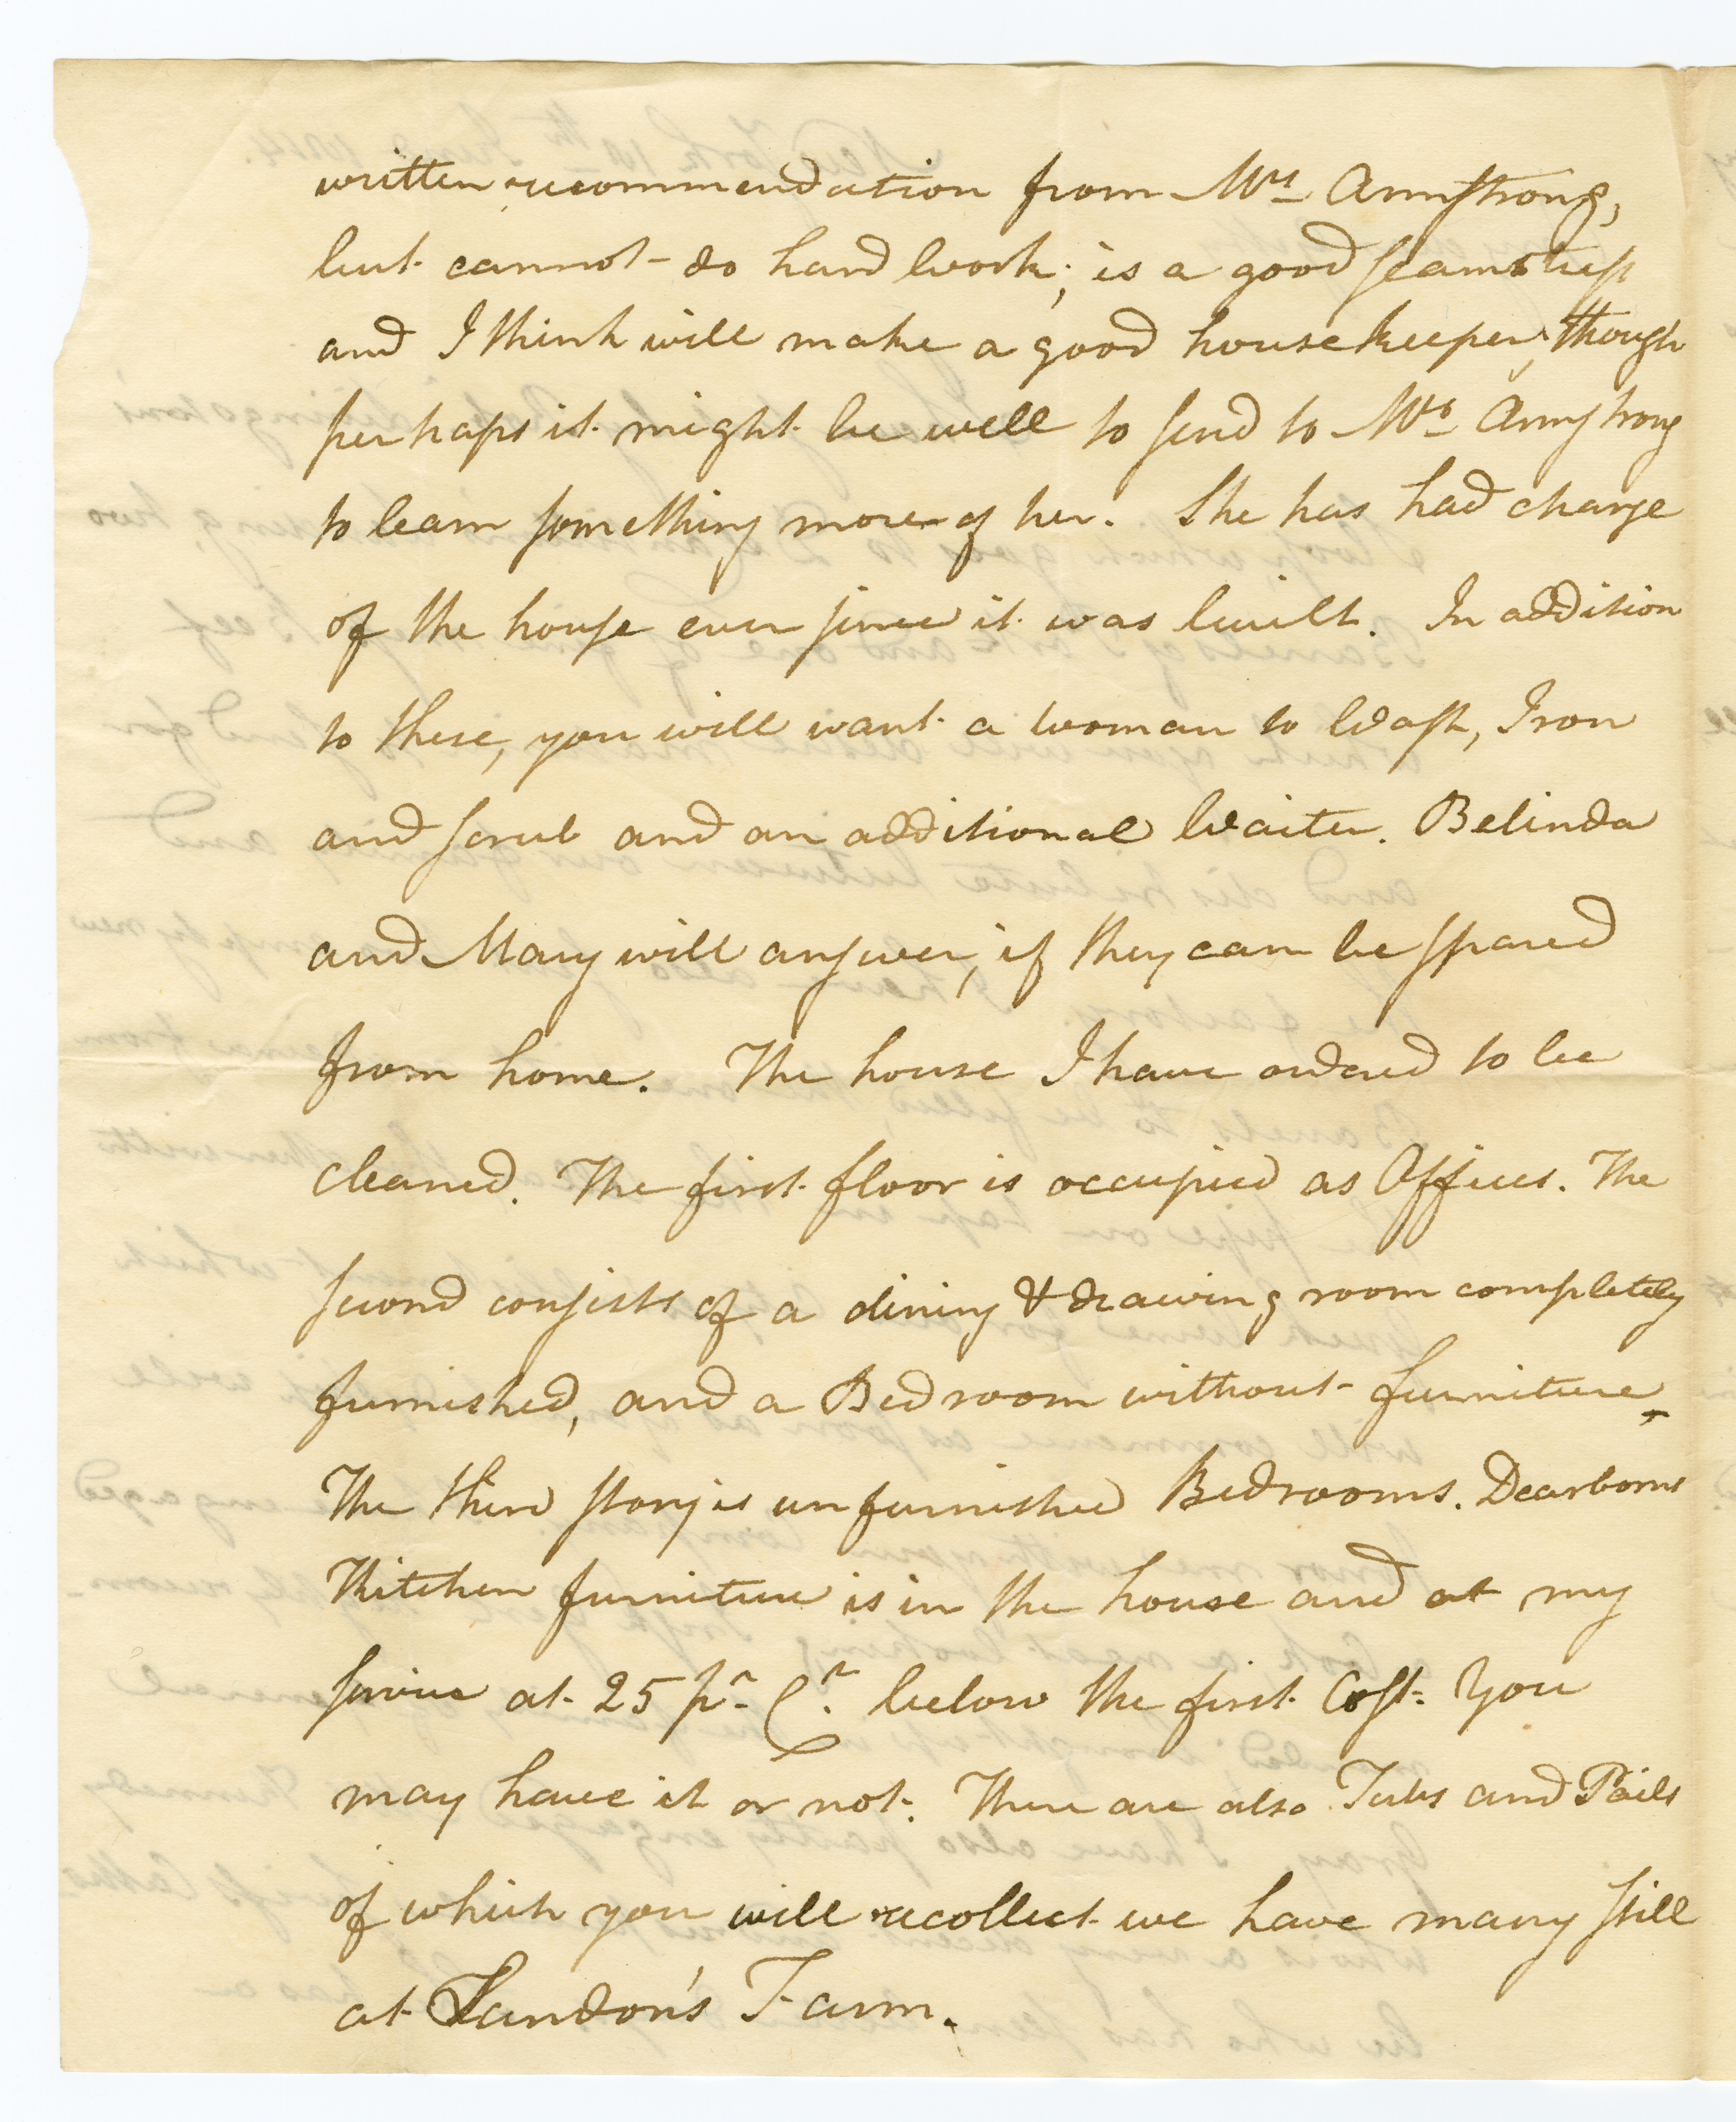 written recommendation from Mrs Armstrong,
but cannot do hard work; is a good seamstress
and I think will make a good housekeeper, though
perhaps it might be well to send to Mrs Armstrong
to learn something more of her. She has had charge
of the house ever since it was built. In addition
to these, you will want a woman to Wash, Iron
and scrub and an additional Waiter. Belinda
and Mary will answer, if they can be spared
from home. The house I have ordered to be
cleaned. The first floor is occupied as Offices. The
second consists of a dining & drawing room completely
furnished, and a Bedroom without furniture.
The third story is unfurnished Bedrooms. Dearborns
Kitchen furniture is in the house and at my
service at 25 pr Ct. below the first Cost. You
may have it or not. There are also Tubs and Pails
of which you will recollect we have many still
at Landon's Farm.